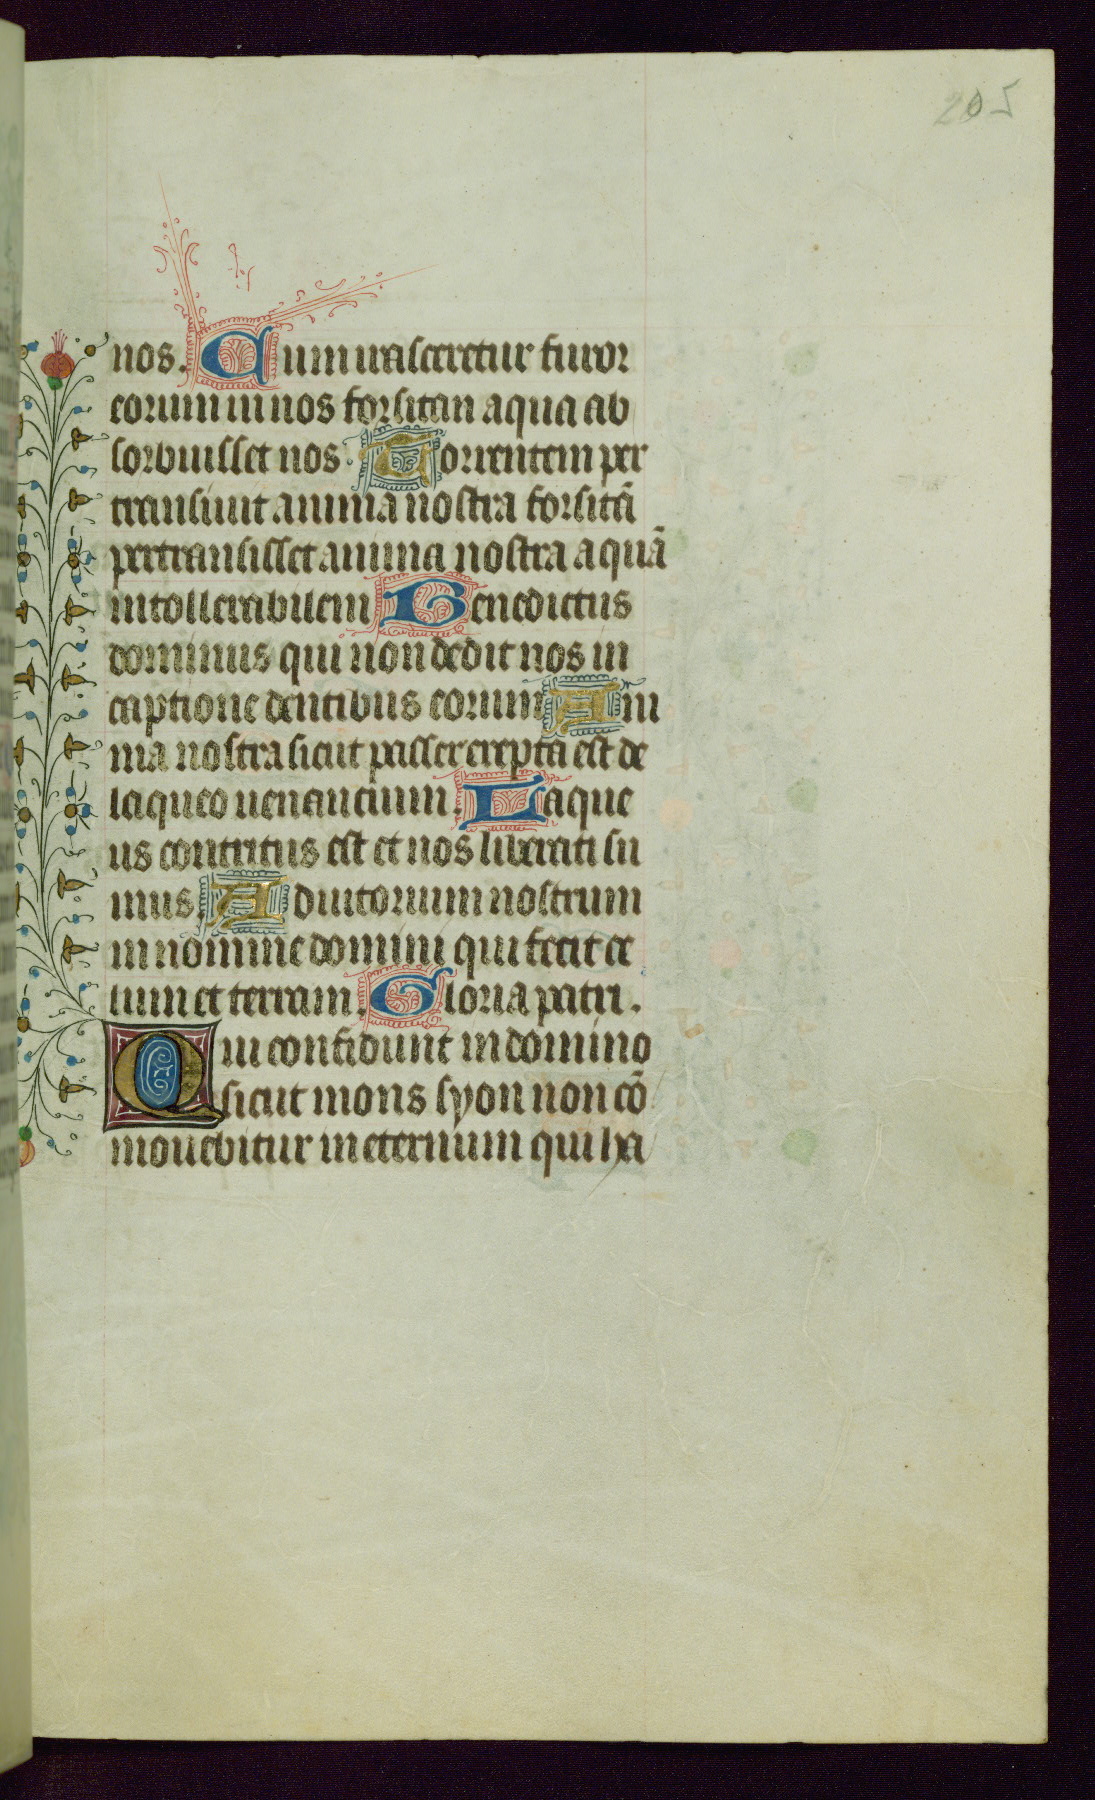 205
nos. Cum irasceretur furor
eorum in nos forsitan aqua ab
sorbuisset nos. Torrentem per
transiuit anima nostra forsitā
pertransisset anima nostra aquā
intollerabilem Benedictus
dominus qui non dedit nos in
captione dentibus eorum Ani
ma nostra sicut passer erepta est de
laqueo uenantium. Laque
us contritus est et nos liberati su
mus. Adiutorium nostrum
in nomine domini qui fecit ce
lum et terram. Gloria patri.
Qui confidunt in domino
sicut mons syon non cō
mouebitur in eternum qui ha